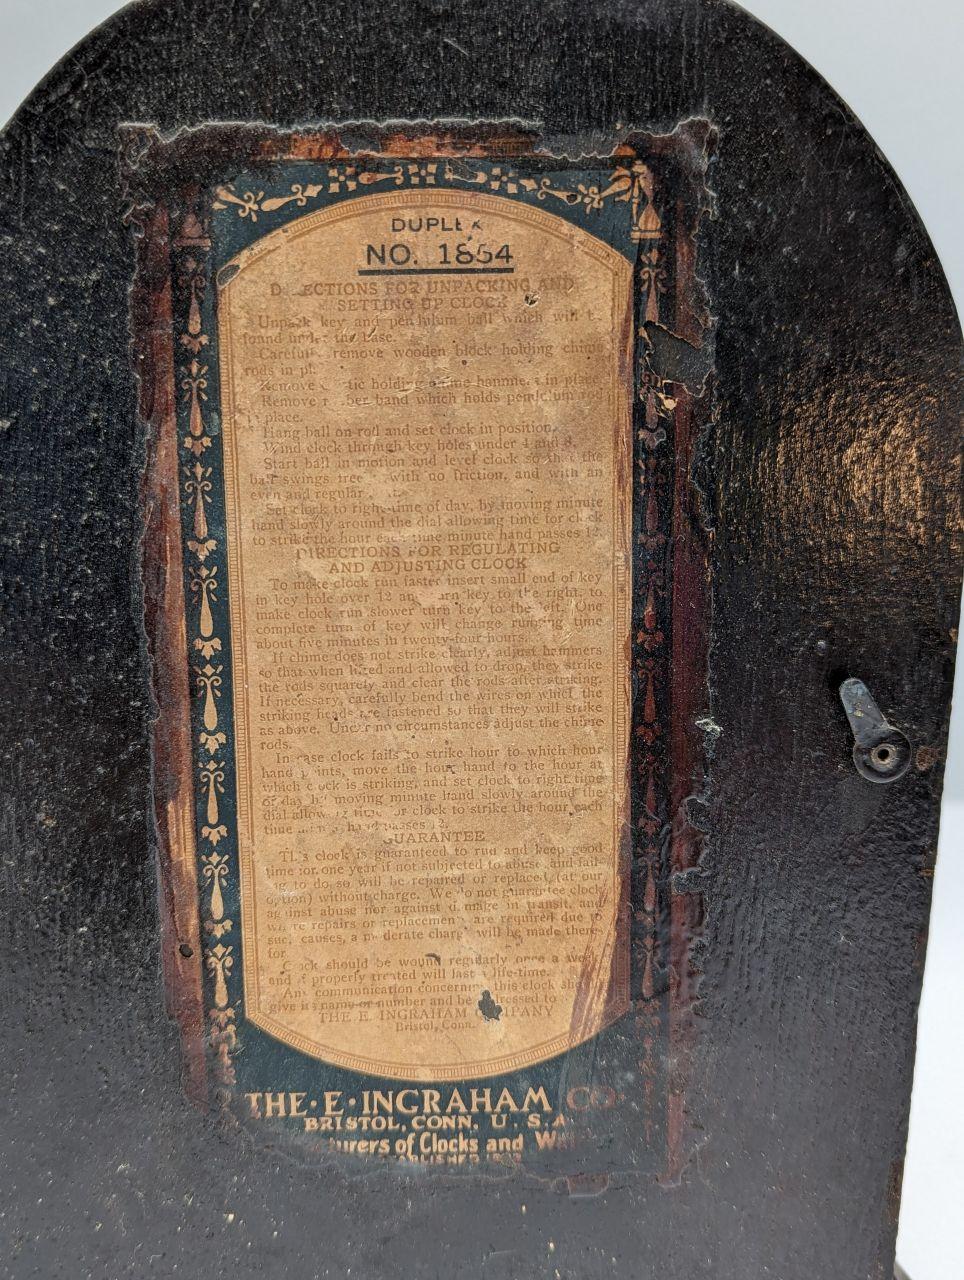 DUPLEX
NO. 1854
DIRECTIONS FOR UNPACKING AND
SETTING UP CLOCK
Unpack key and pendulum ball which will be
found under the base.
Carefully remove wooden block holding chime
rods in pl
Remove holding chime hammers in place
Remove rubber band which holds pendulum rod
place.
Hang ball on rod and set clock in position.
Wind clock through key holes under 4 and 8.
Start ball in motion and level clock so that the
ball swings free with no friction, and with an
even and regular
Set clock to right time of day, by moving minute
hand slowly around the dial allowing time for clock
to strike the hour each time minute hand passes 12.
DIRECTIONS FOR REGULATING
AND ADJUSTING CLOCK
To make clock run faster insert small end of key
in key hole over 12 and turn key to the right, to
make clock run slower turn key to the left. One
complete turn of key will change running time
about five minutes in twenty-four hours.
If chime does not strike clearly, adjust hammers
so that when lifted and allowed to drop, they strike
the rods squarely and clear the rods after striking.
If necessary, carefully bend the wires on which the
striking heads are fastened so that they will strike
as above. Under no circumstances adjust the chime
rods.
In case clock fails to strike hour to which hour
hand points, move the hour hand to the hour at
which clock is striking, and set clock to right time
of day by moving minute hand slowly around the
dial allowing time for clock to strike the hour each
time hand passes 12.
GUARANTEE
This clock is guaranteed to run and keep good
time for one year if not subjected to abuse and fail-
to do so will be repaired or replaced (at our
option) without charge. We do not guarantee clock
against abuse nor against damage in transit, and
where repairs or replacement are required due to
such causes, a moderate charge will be made there-
for
Clock should be wound regularly once a week
and if properly treated will last a life-time.
Any communication concerning this clock should
give its name or number and be addressed to
THE E. INGRAHAM COMPANY
Bristol, Conn.
THE·E·INGRAHAM CO·
BRISTOL, CONN. U. S. A
turers of Clocks and W
ABLISHED